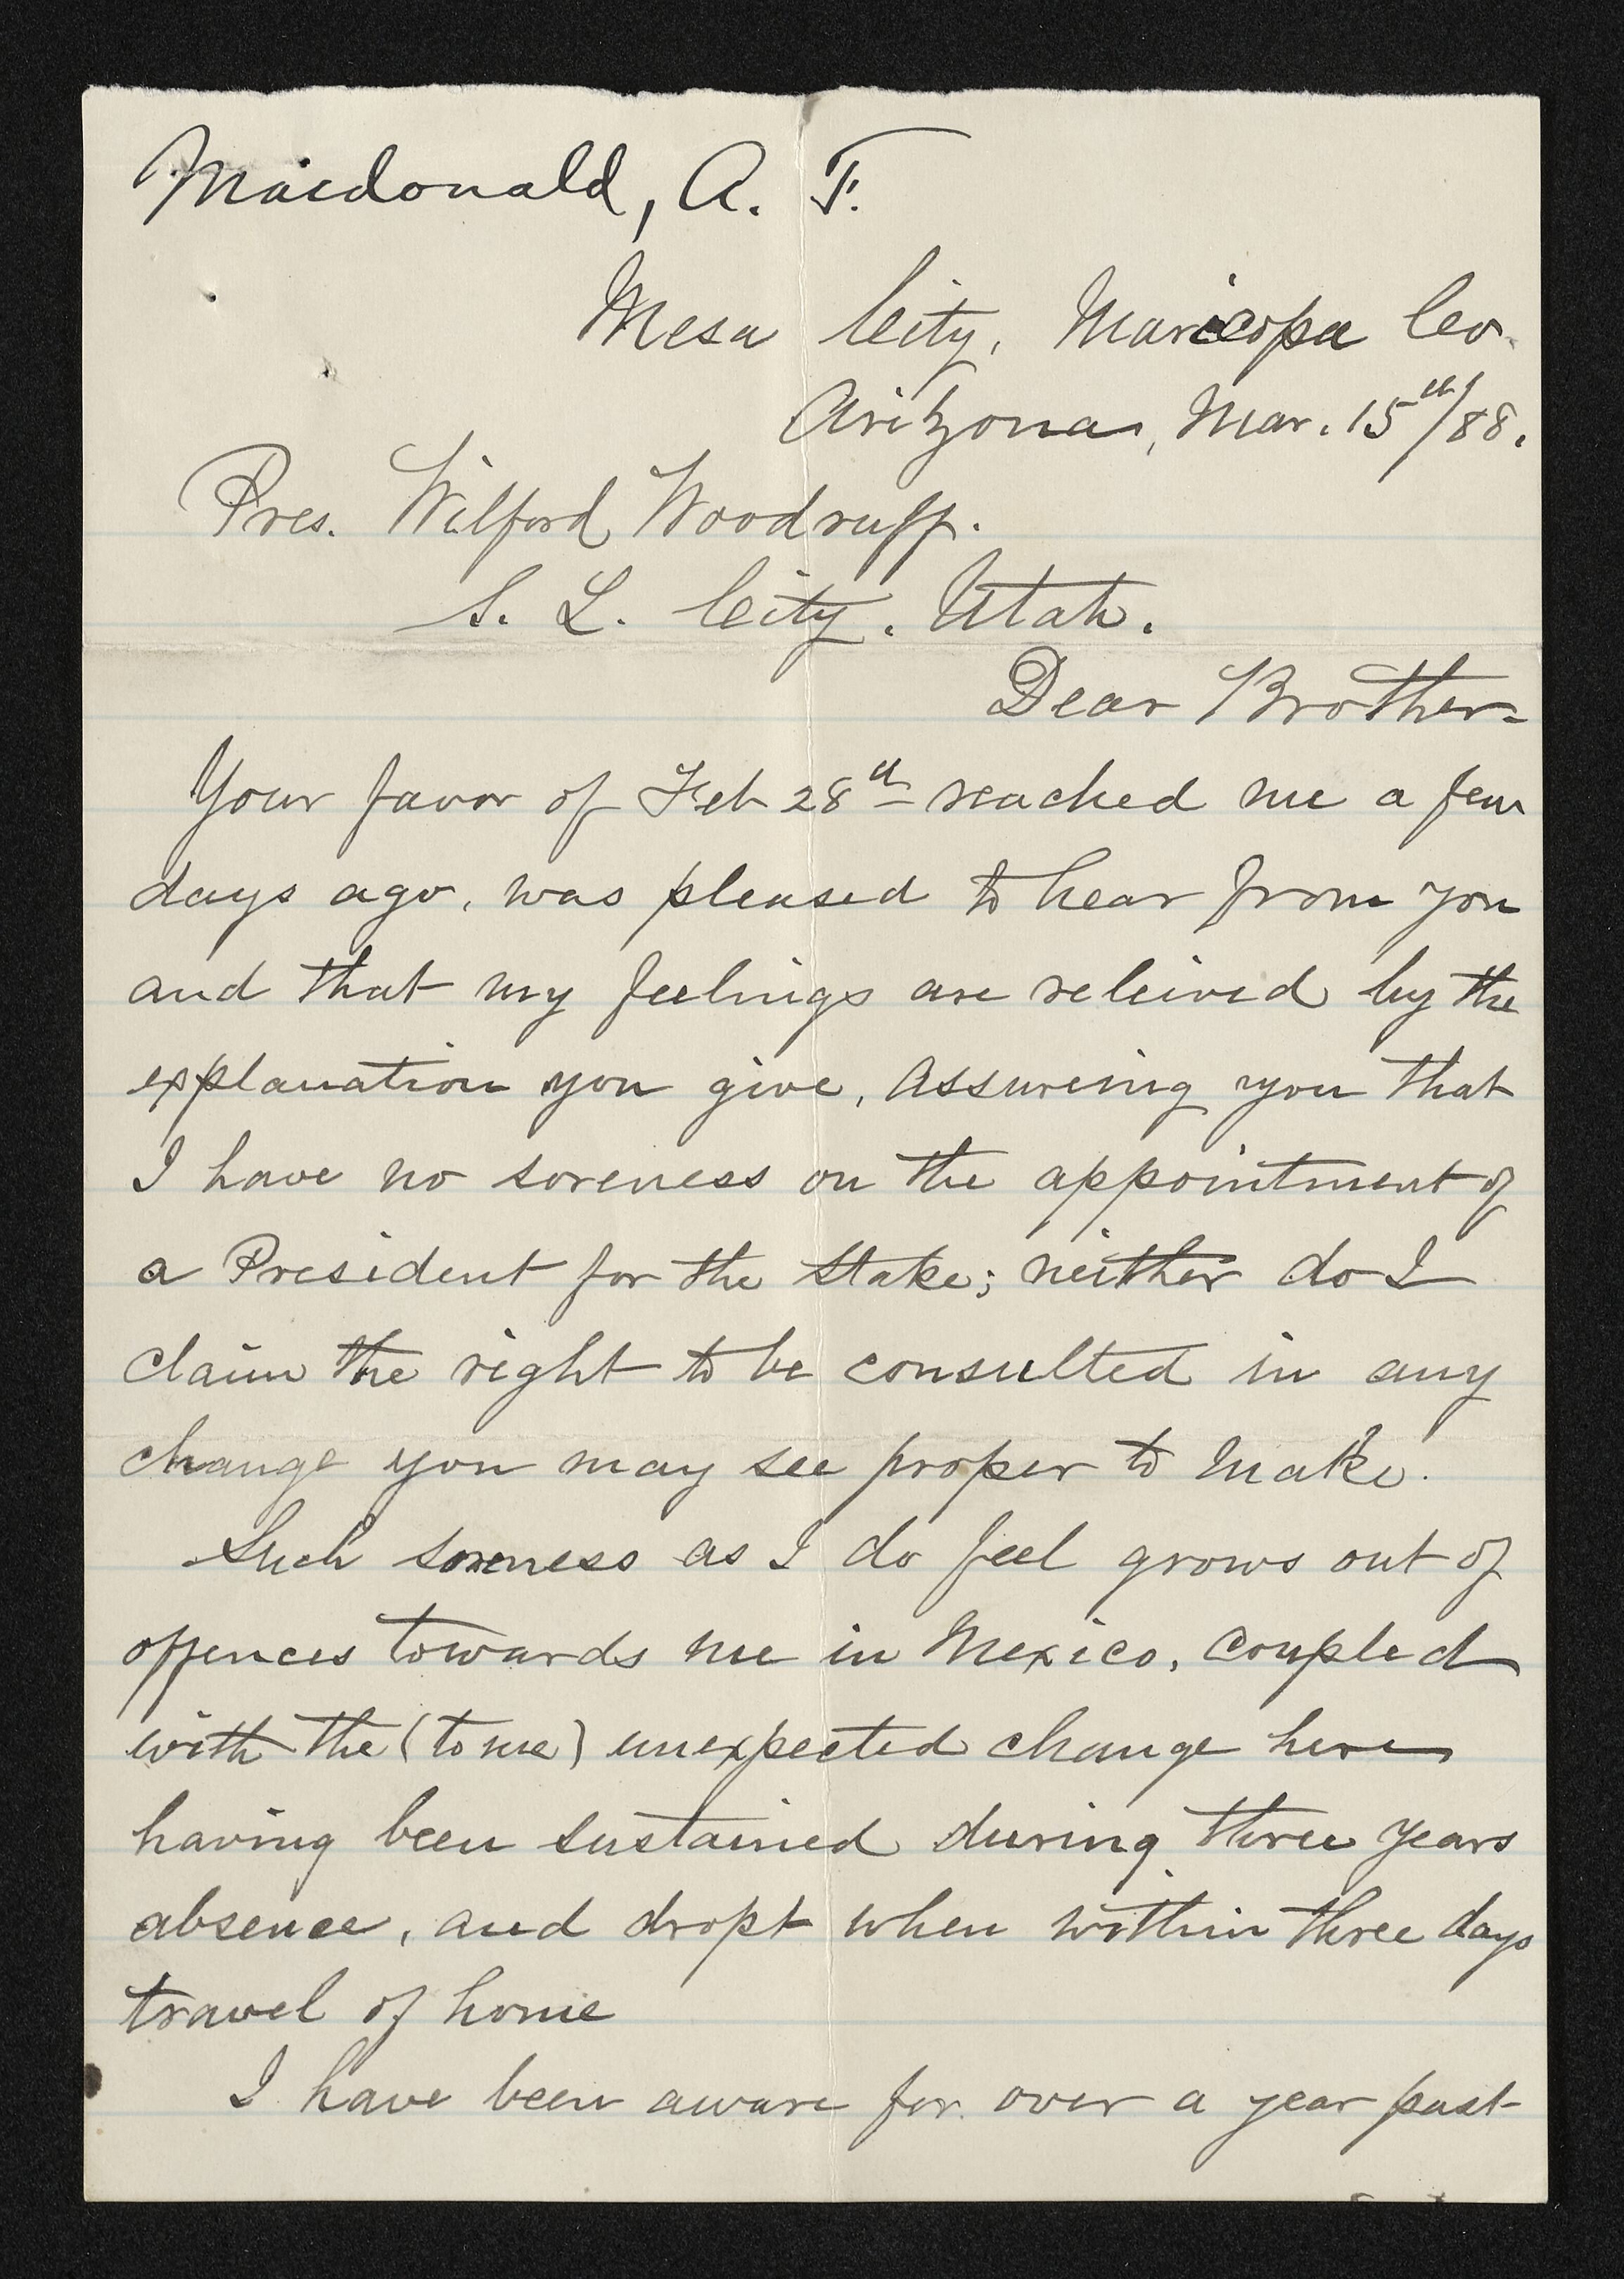 Macdonald, A. F.
Mesa City, Maricopa Co.
Arizona, Mar. 15th/88.
Pres. Wilford Woodruff.
S. L. City. Utah.
Dear Brother-
Your favor of Feb 28th reached me a few
days ago, was pleased to hear from you
and that my feelings are releived by the
explanation you give, Assureing you that
I have no soreness on the appointment of
a President for the Stake; neither do I
claim the right to be consulted in any
change you may see proper to make.
Such soreness as I do feel grows out of
offences towards me in Mexico, coupled
with the (to me) unexpected change here
having been sustained during three years
absence, and dropt when within three days
travel of home
I have been aware for over a year past